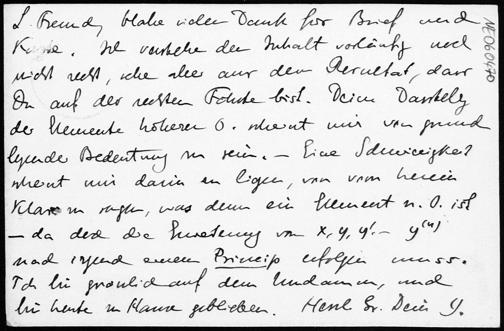 L. Freund, habe vielen Dank für Brief und
Karte. Ich verstehe den Inhalt vorläufig noch
nicht recht, sehe aber aus dem Resultat, dass
Du auf der rechten Fährte bist. Deine Darstellg
der Elemente höherer O. scheint mir von grund
legender Bedeutung zu sein. – Eine Schwierigkeit
scheint mir darin zu liegen, von vorn herein
klar zu sagen, was denn ein Element n. O. ist
– da doch die Erweiterung von x, y, y'. – y⁽ⁿ⁾
nach irgend einem Princip erfolgen muss.
Ich bin greulich auf dem Hund, und
bin heute zu Hause geblieben. Herzl Gr. Dein
NE060470